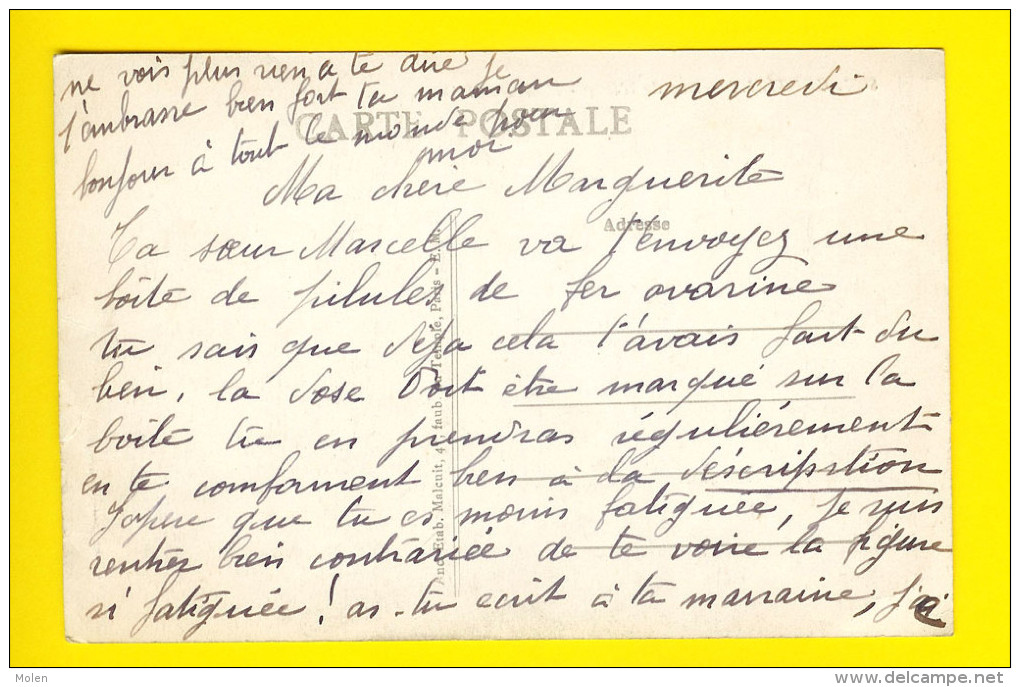 mercredi
CARTE POSTALE
Adresse
Ma chère Marguerite
Ta sœur Marcelle va t'envoyez une
boite de pilules de fer ovarine
tu sais que déja cela t'avais fait du
bein, la dose doit être marqué sur la
boite tu en prendras régulièrement
en te comforment bein à la déscripstion
J'opere que tu es moins fatiguée, je suis
rentrez bein contrariée de te voire la figure
si fatiguée ! as-tu ecrit à ta marraine, j'ai
ne vois plus rien a te dire je
t'ambrasse bein fort ta maman
bonjour à tout le monde pour
moi
Anc. Etab. Malcuit, 41 faub. du Temple, Paris -
Molen
delcampe.net